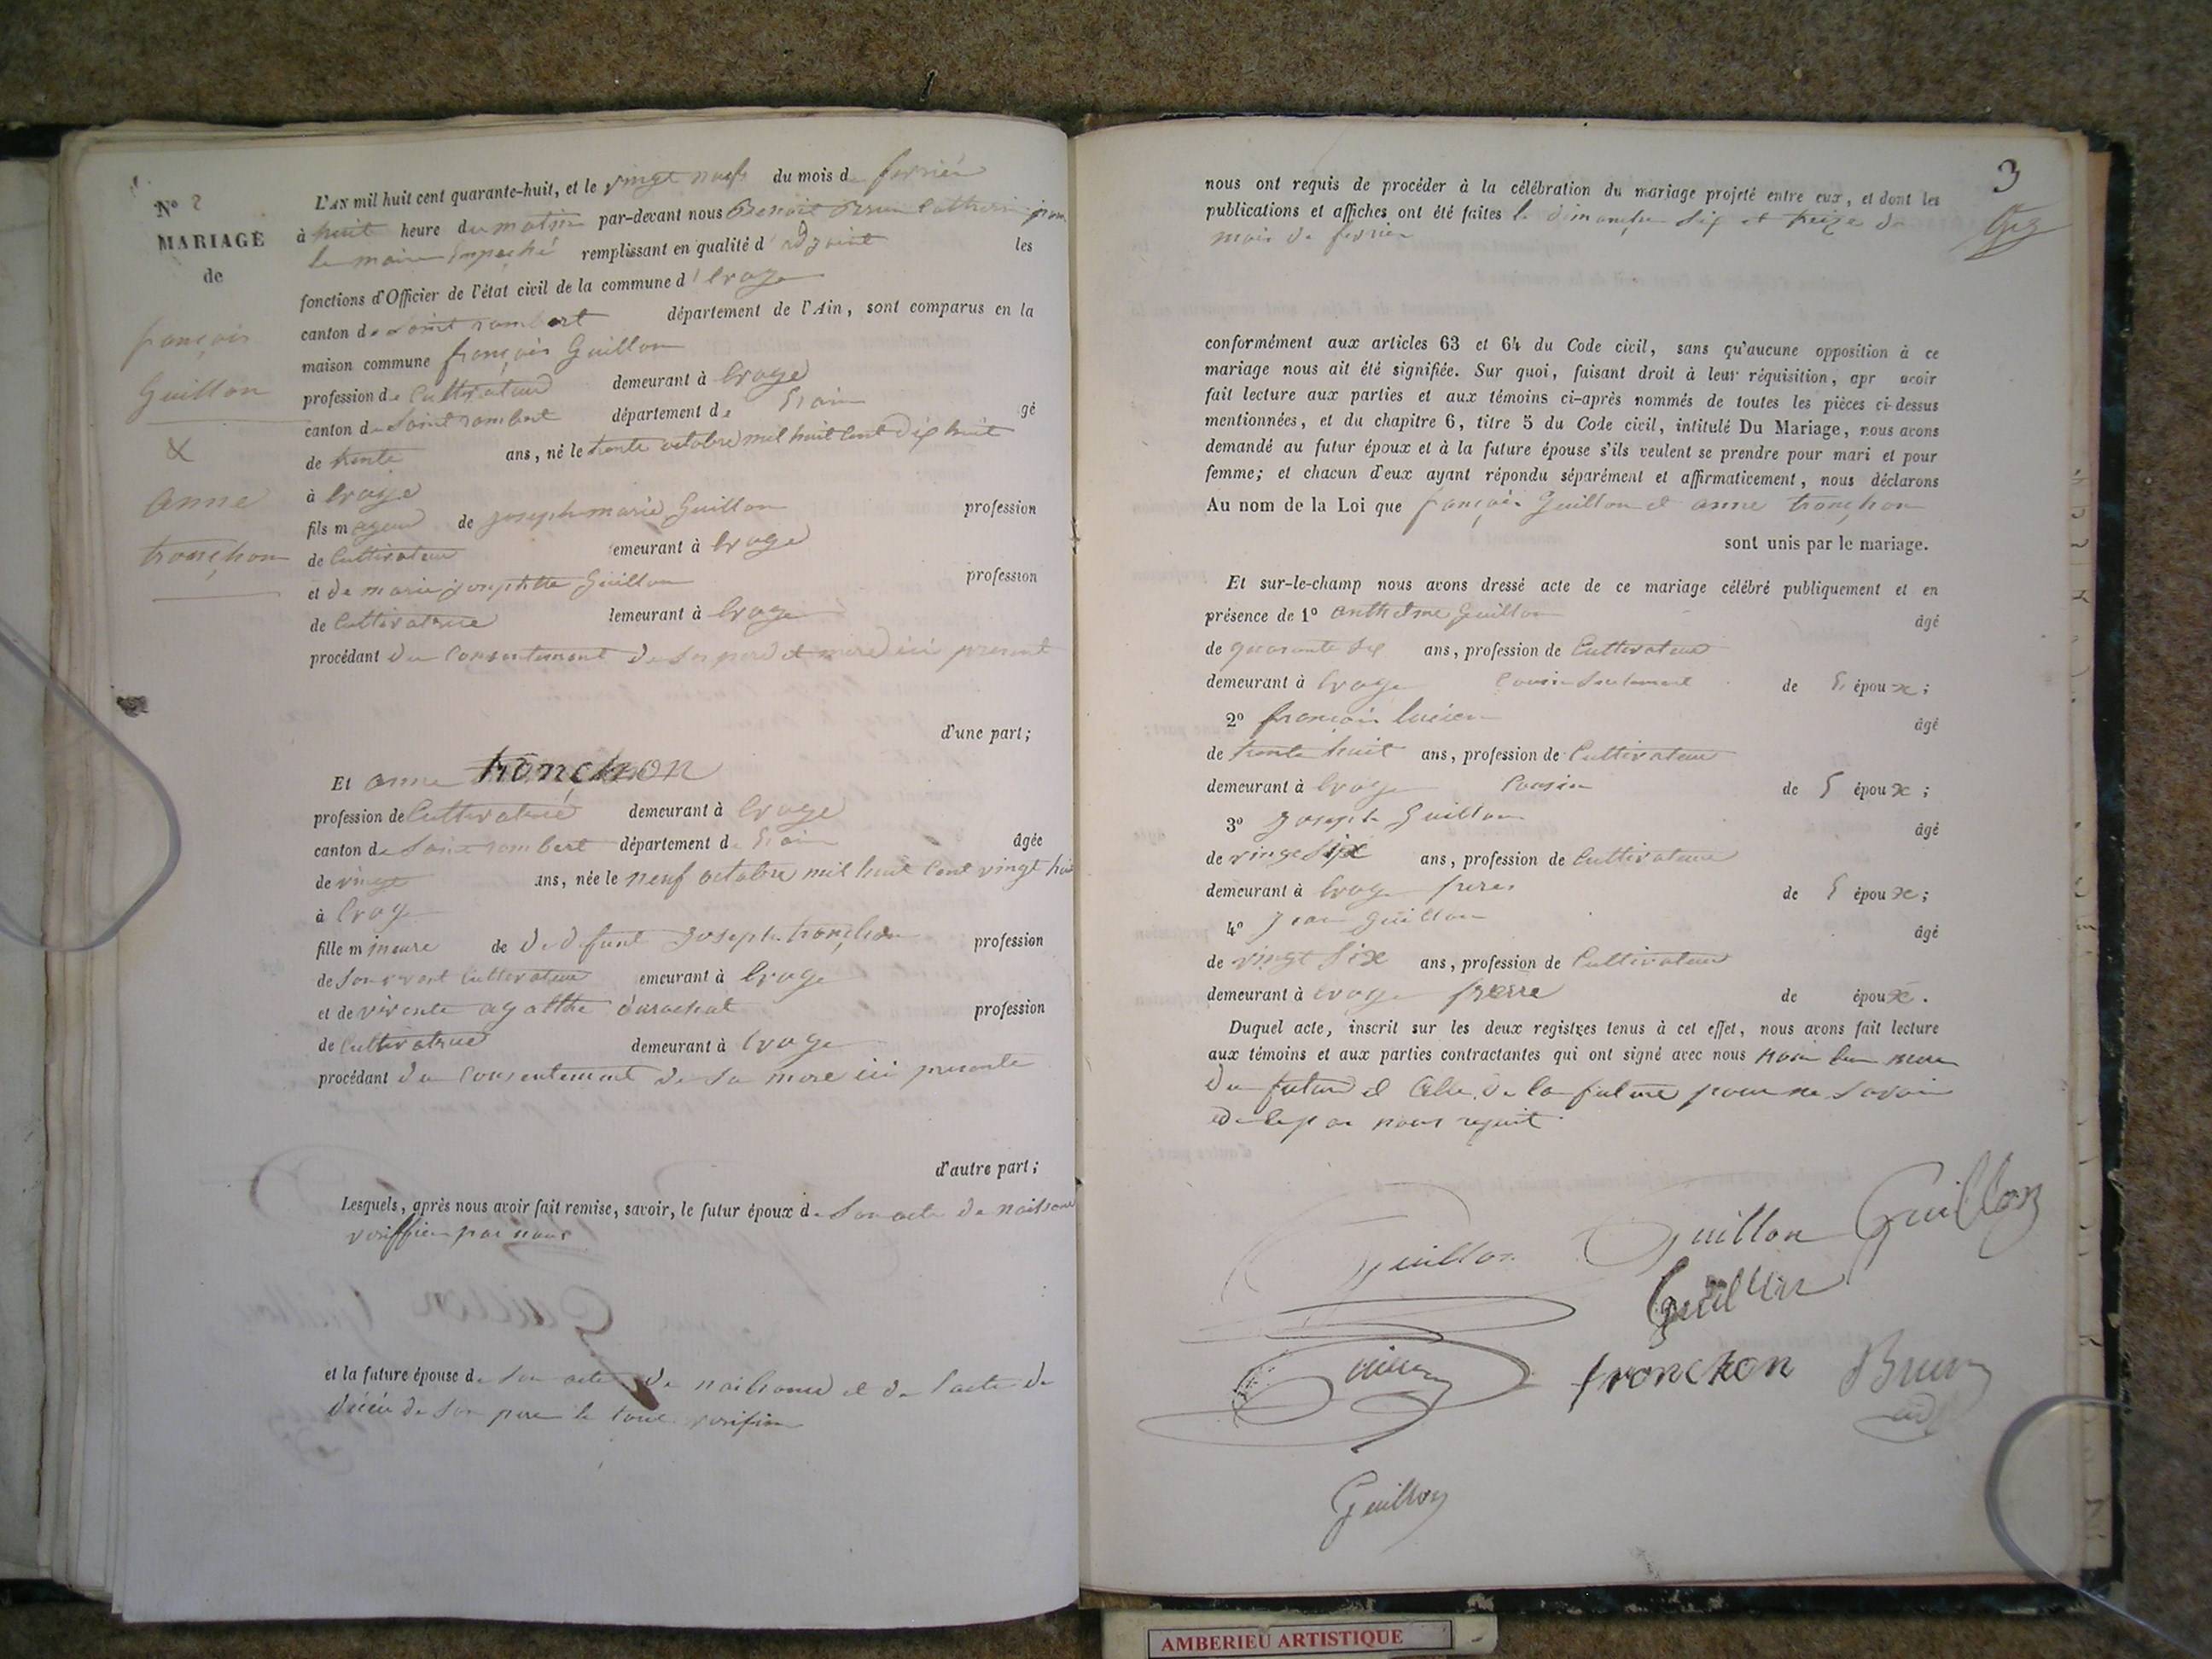 N° 2
MARIAGE
de
françois
Guillon
&
anne
tronchon
L'AN mil huit cent quarante-huit, et le vingt neuf du mois de fevrier
à huit heure du matin par-devant nous Benoit Brun
le maire Empeché remplissant en qualité d'adjoint les
fonctions d'Officier de l'état civil de la commune d'
canton de Saint rambert département de l'Ain, sont comparus en la
maison commune françois Guillon
profession de Cultivateur demeurant à
canton de Saint rambert département de L'ain gé
de trente ans, né le trente octobre mil huit Cent Dix huit
à
fils mageur de joseph marie Guillon profession
de Cultivateur emeurant à
et de marie josephtte Guillon profession
de Cultivatrice demeurant à
procédant du Consentement de Son pere et mere ici present
d'une part;
Et anne tronchon
profession de Cultivatrice demeurant à
canton de Saint rambert département de L'ain âgée
de vingt ans, née le neuf octobre mil huit Cent vingt huit
à
fille mineure de De defunt Joseph tronchon profession
de Son vivant Cultivateur emeurant à
et de vivente agatthe profession
de Cultivatrice demeurant à
procédant du Consentement de Sa mere ici presente
d'autre part;
Lesquels, après nous avoir fait remise, savoir, le futur époux de Son acte de naissance
veriffier par nous
et la future épouse de Son acte de naissance et de l'acte de
décéé de Son pere le tout verifier
3
nous ont requis de procéder à la célébration du mariage projeté entre eux, et dont les
publications et affiches ont été faites le dimanche Six et treize du
mois de fevrier
conformément aux articles 63 et 64 du Code civil, sans qu'aucune opposition à ce
mariage nous ait été signifiée. Sur quoi, faisant droit à leur réquisition, apr avoir
fait lecture aux parties et aux témoins ci-après nommés de toutes les pièces ci-dessus
mentionnées, et du chapitre 6, titre 5 du Code civil, intitulé Du Mariage, nous avons
demandé au futur époux et à la future épouse s'ils veulent se prendre pour mari et pour
femme; et chacun d'eux ayant répondu séparément et affirmativement, nous déclarons
Au nom de la Loi que françois Guillon et anne tronchon
sont unis par le mariage.
Et sur-le-champ nous avons dressé acte de ce mariage célébré publiquement et en
présence de 1° antthelme Guillon âgé
de quarante Six ans, profession de Cultivateur
demeurant à Cousin Seulement de L'époux;
2° françois âgé
de trente huit ans, profession de Cultivateur
demeurant à Cousin de L époux;
3° Joseph Guillon âgé
de vingt Six ans, profession de Cultivateur
demeurant à frere de L époux;
4° Jean Guillon âgé
de vingt Six ans, profession de Cultivateur
demeurant à frerre de époux.
Duquel acte, inscrit sur les deux registres tenus à cet effet, nous avons fait lecture
aux témoins et aux parties contractantes qui ont signé avec nous mere
du futur et Celle de la future pour ne Savoir
de par nous requit
Guillon Guillon Guillon
Guillon
tronchon Brun
adj
Guillon
AMBERIEU ARTISTIQUE